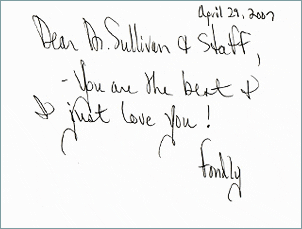 April 29, 2007
Dear Dr. Sullivan & Staff,
- You are the best &
I just love you!
Fondly